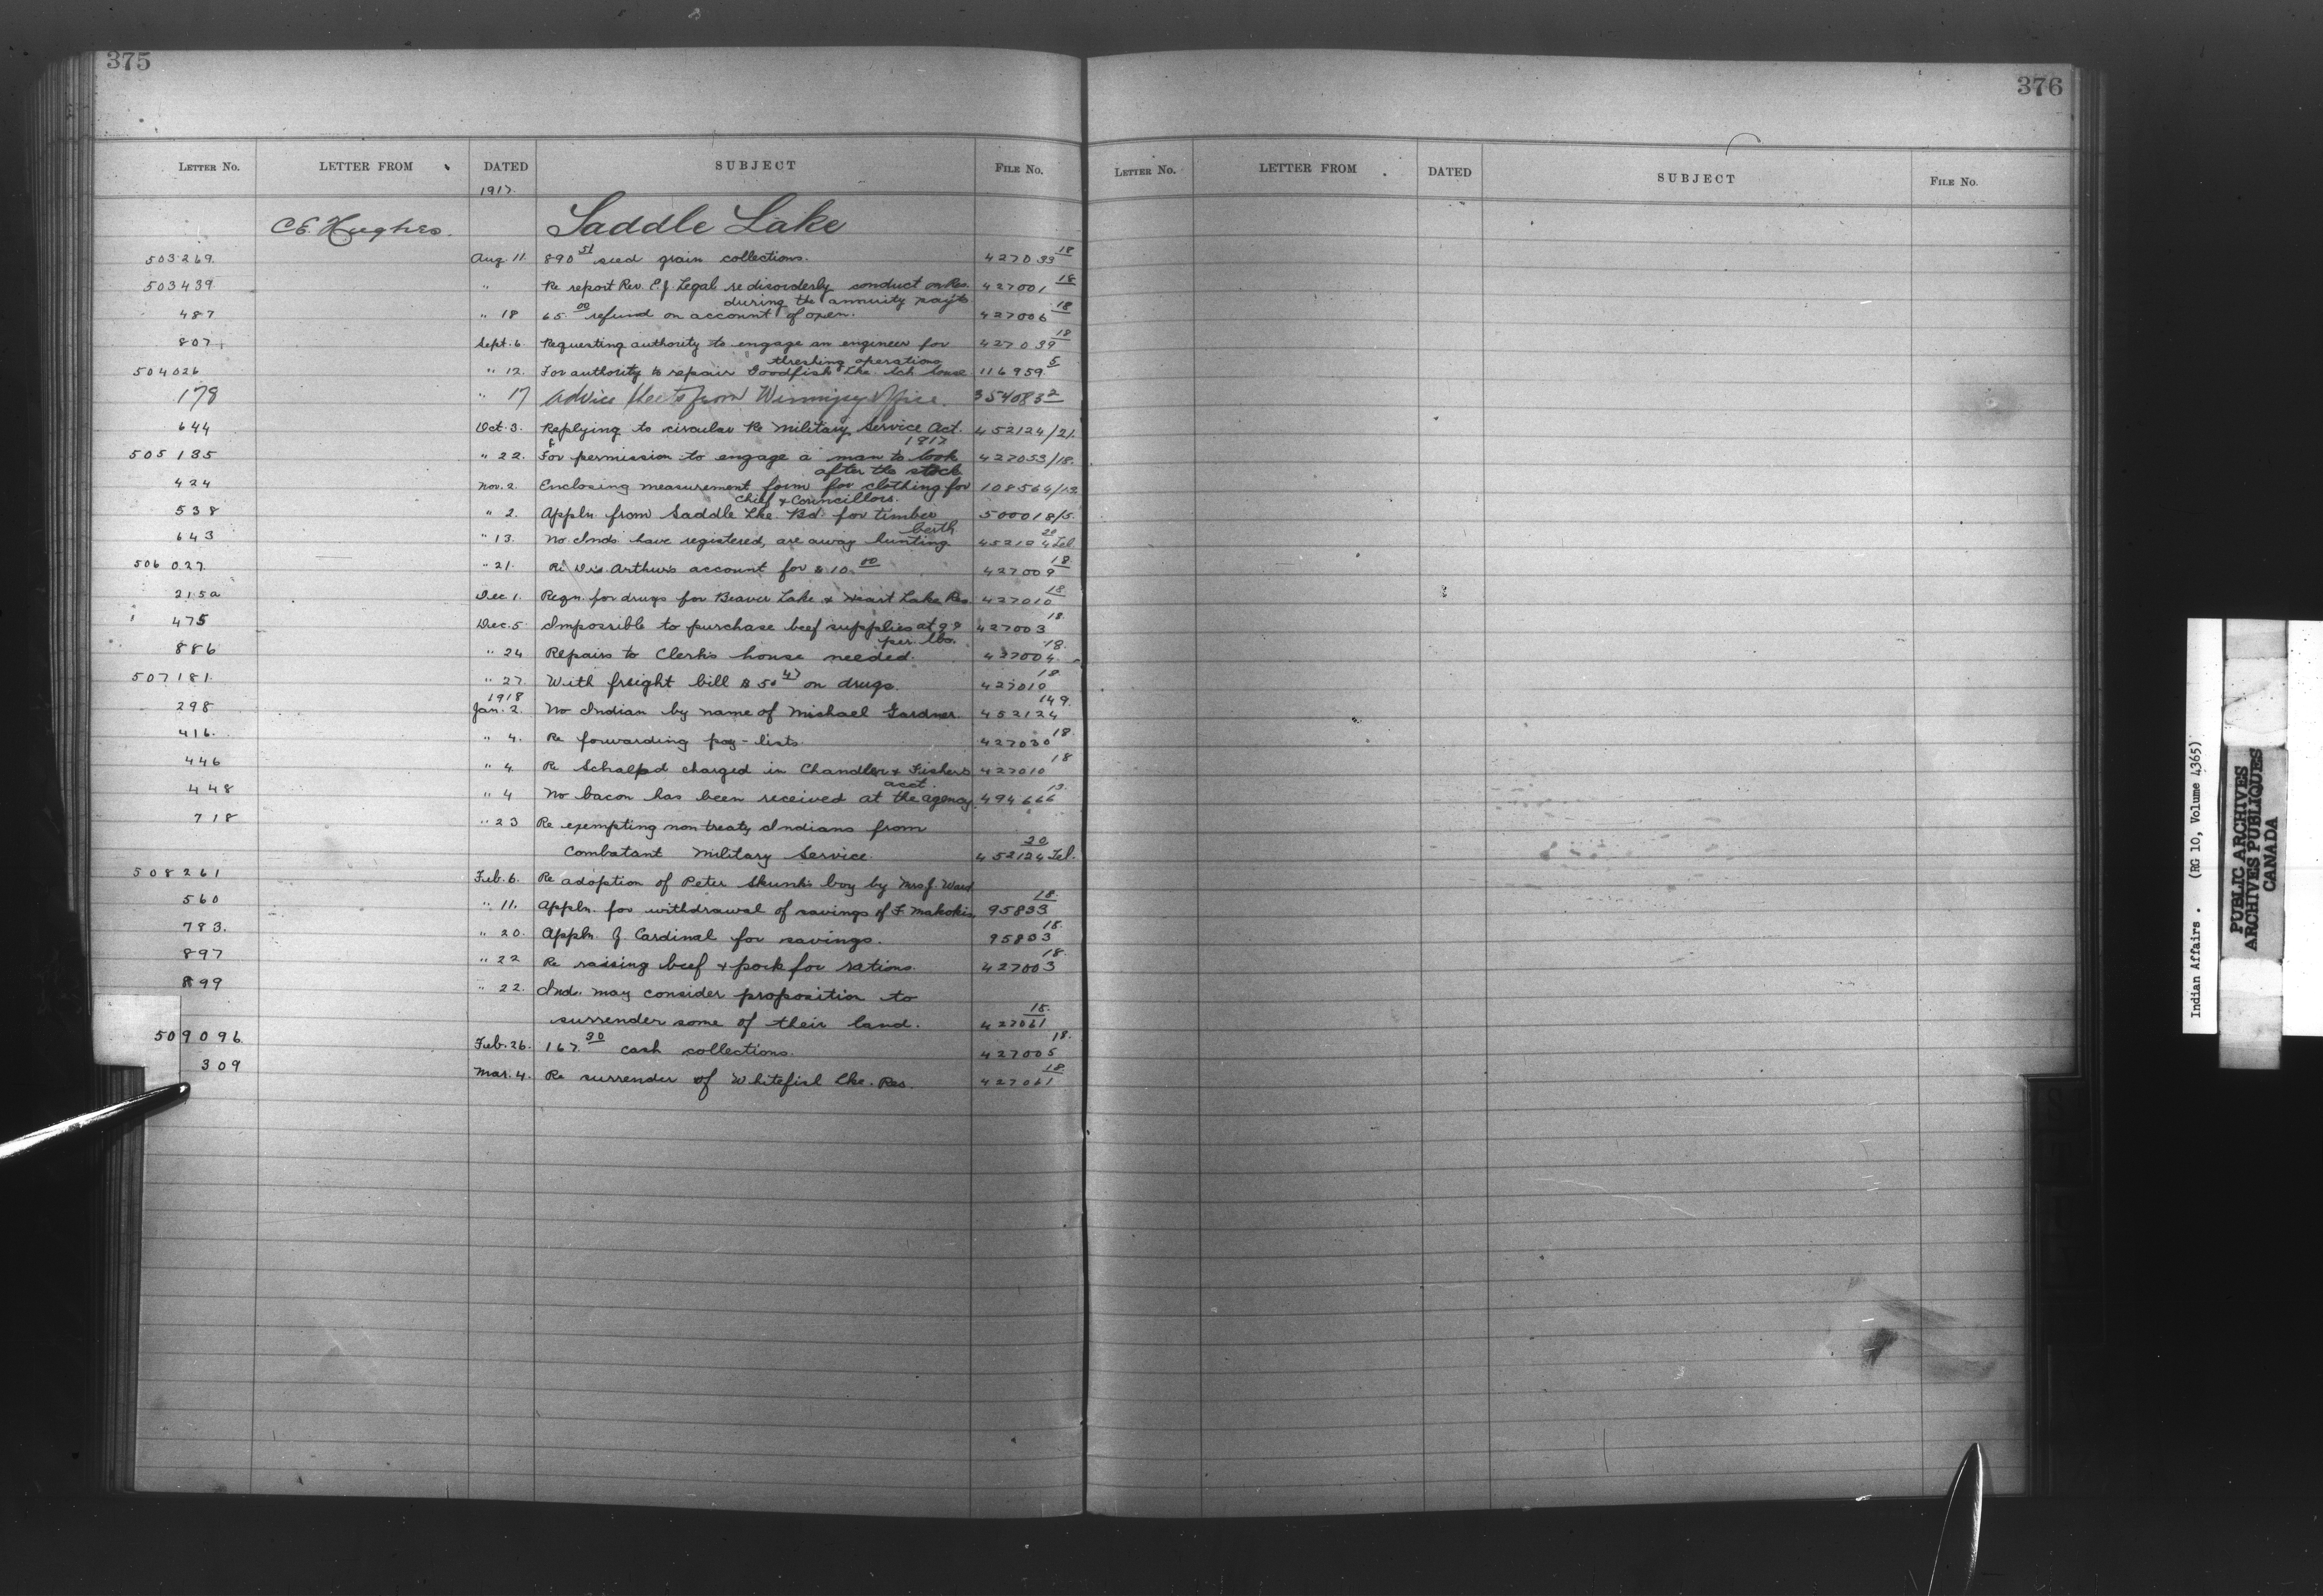 375
LETTER NO. LETTER FROM DATED SUBJECT FILE NO.
1917.
C E Hughes. Saddle Lake
503269. Aug. 11. 890 51 seed grain collections. 427033 18
503439 " Re report Rev. E. J. Legal re disorderly conduct on Res. 427001 18
during the annuity payts
487 " 18 65. 00 refund on account of oxen. 427006 18
807. Sept. 6. Requesting authority to engage an engineer for 427039 18
threshing operations
504026 " 12. For authority to repair Goodfish Lke. Sch. house 116959. 5
178 " 17 Advice sheets from Winnipeg Office. 354083 2
644 Oct. 3. Replying to circular Re Military Service Act. 452124/21.
1917
505135 " 22. For permission to engage a man to look 427053/18.
after the stock
424 Nov. 2. Enclosing measurement form for clothing for 108564/13.
Chief & Councillors.
538 " 2. Appln. from Saddle Lke. Bd. for timber 500018/5.
berth.
643 " 13. No Inds. have registered, are away hunting 452124 20 Tel.
506027. " 21. Re Dr. Arthur's account for $10. 00 427009 18
215a Dec. 1. Reqn. for drugs for Beaver Lake & Heart Lake Res. 427010 18
475 Dec. 5. Impossible to purchase beef supplies at 9¢ 427003 18.
per. lbs.
886 " 24 Repairs to Clerk's house needed. 427004. 18.
507181. " 27. With freight bill $50 47 on drugs. 427010 18
1918
298 Jan. 2. No Indian by name of Michael Gardner. 452124 149.
416. " 4. Re forwarding pay-lists. 427030 18
446 " 4. Re charged in Chandler & Fisher's 427010 18
acct.
448 " 4 No bacon has been received at the agency. 494666 13.
718 " 23 Re exempting non treaty Indians from
Combatant Military Service. 452124 20 Tel.
508261 Feb. 6. Re adoption of Peter Skunk's boy by Mrs J. Ward
560 " 11. Appln. for withdrawal of savings of F. Makokis. 95833 18
783. " 20. Appln. J. Cardinal for savings. 95833 18.
897 " 22 Re raising beef & pork for rations. 427003 18.
899 " 22. Ind. may consider proposition to
surrender some of their land. 427061 18.
509096. Feb. 26. 167. 30 cash collections. 427005 18.
309 Mar. 4. Re surrender of Whitefish Lke. Res. 427061 18
376
LETTER NO. LETTER FROM DATED SUBJECT FILE NO.
Indian Affairs. (RG 10, Volume 4365)
PUBLIC ARCHIVES
ARCHIVES PUBLIQUES
CANADA